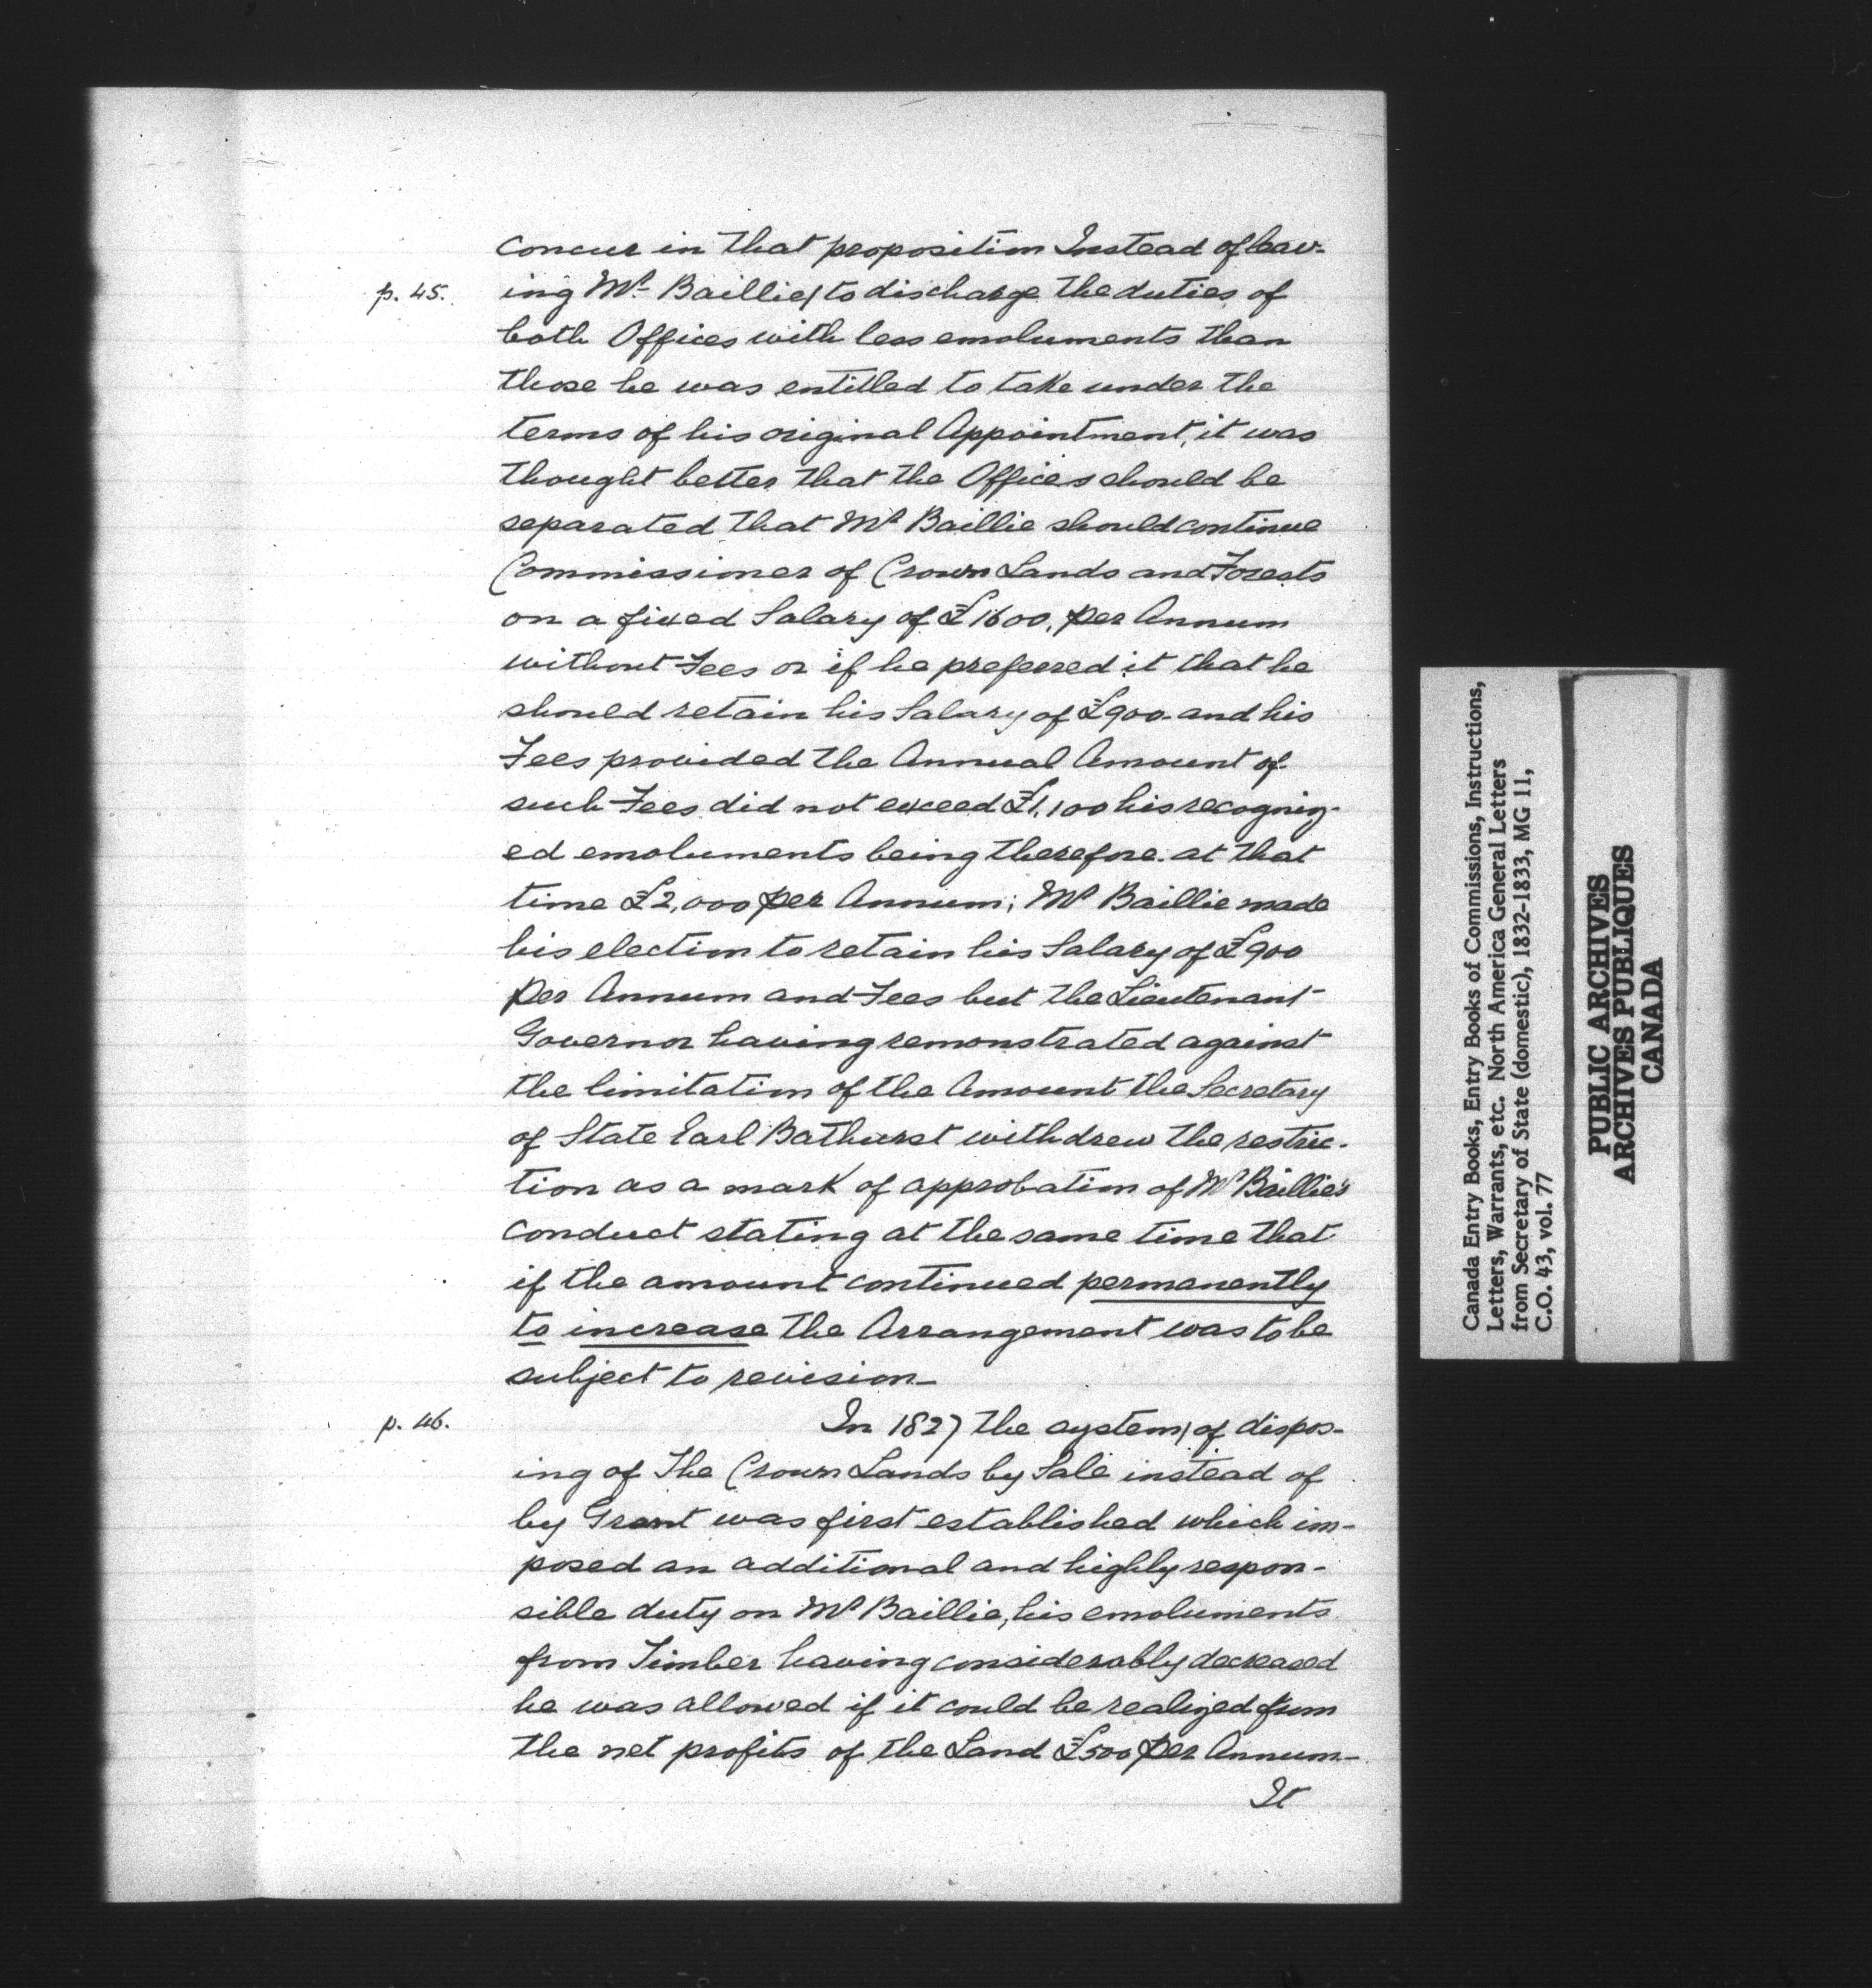 concur in that proposition Instead of leav-
p. 45. ing Mr Baillie/ to discharge the duties of
both Offices with less emoluments than
those he was entitled to take under the
terms of his original Appointment, it was
thought better that the Offices should be
separated that Mr Baillie should continue
Commissioner of Crown Lands and Forests
on a fixed Salary of £1600, per Annum
without Fees or if he preferred it that he
should retain his Salary of £900 and his
Fees provided the Annual Amount of
such Fees did not exceed £1,100 his recogniz-
ed emoluments being therefore at that
time £2,000 per Annum; Mr Baillie made
his election to retain his Salary of £900
per Annum and Fees but the Lieutenant
Governor having remonstrated against
the limitation of the Amount the Secretary
of State Earl Bathurst withdrew the restric-
tion as a mark of approbation of Mr Baillie's
conduct stating at the same time that
if the amount continued permanently
to increase the Arrangement was to be
subject to revision_
p. 46. In 1827 the system/ of dispos-
ing of the Crown Lands by Sale instead of
by Grant was first established which im-
posed an additional and highly respon-
sible duty on Mr Baillie, his emoluments
from Timber having considerably decreased
he was allowed if it could be realized from
the net profits of the Land £500 per Annum_
It
Canada Entry Books, Entry Books of Commissions, Instructions,
Letters, Warrants, etc. North America General Letters
from Secretary of State (domestic), 1832-1833, MG 11,
C.O. 43, vol. 77
PUBLIC ARCHIVES
ARCHIVES PUBLIQUES
CANADA